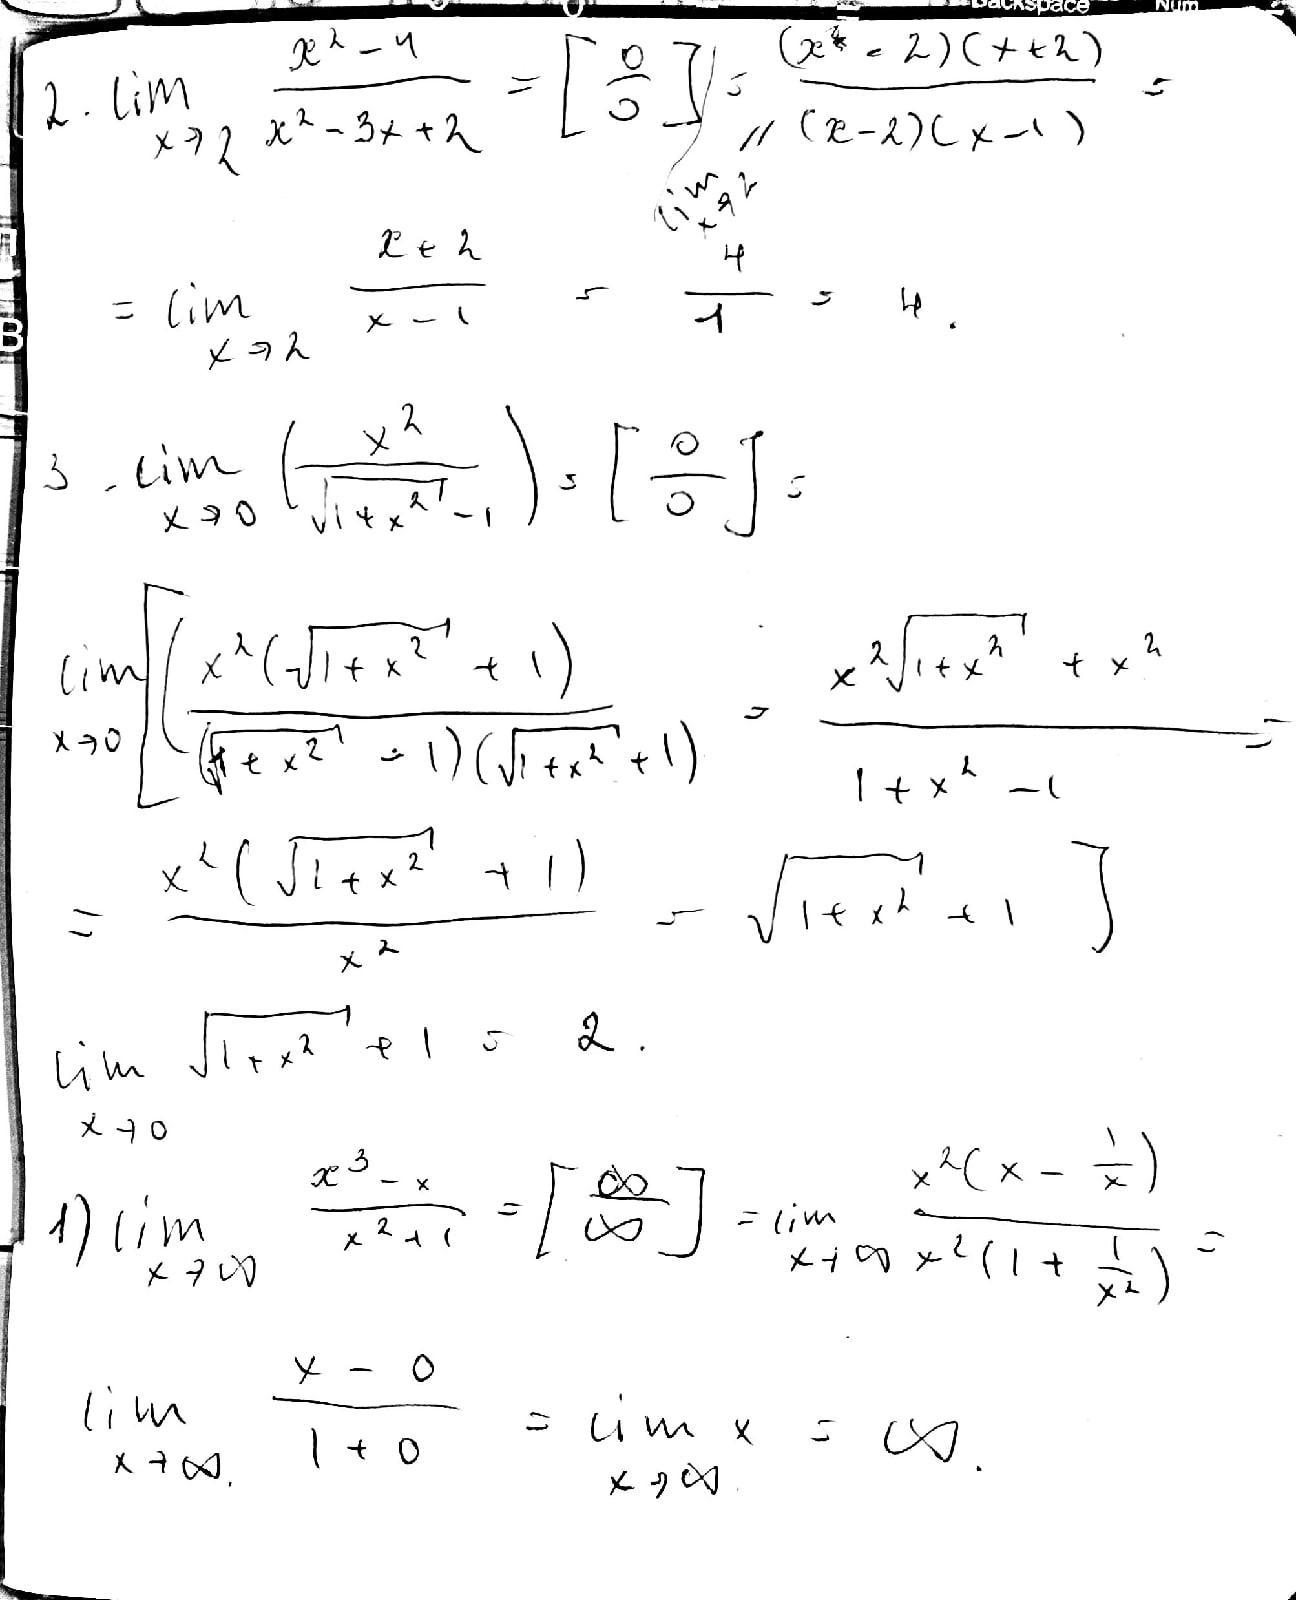 Backspace Num
2. lim x→2 (x² - 4)/(x² - 3x + 2) = [0/0] = lim x→2 ((x - 2)(x+2))/((x-2)(x-1)) =
= lim x→2 (x+2)/(x-1) = 4/1 = 4.
3. lim x→0 (x²/(√(1+x²) - 1)) = [0/0] =
lim x→0 [((x²(√(1+x²) + 1))/((√(1+x²) - 1)(√(1+x²) + 1)) = (x²√(1+x²) + x²)/(1+x² - 1) =
= (x²(√(1+x²) + 1))/x² = √(1+x²) + 1]
lim x→0 √(1+x²) + 1 = 2.
1) lim x→∞ (x³ - x)/(x² + 1) = [∞/∞] = lim x→∞ (x²(x - 1/x))/(x²(1 + 1/x²)) =
lim x→∞. (x - 0)/(1 + 0) = lim x→∞ x = ∞.